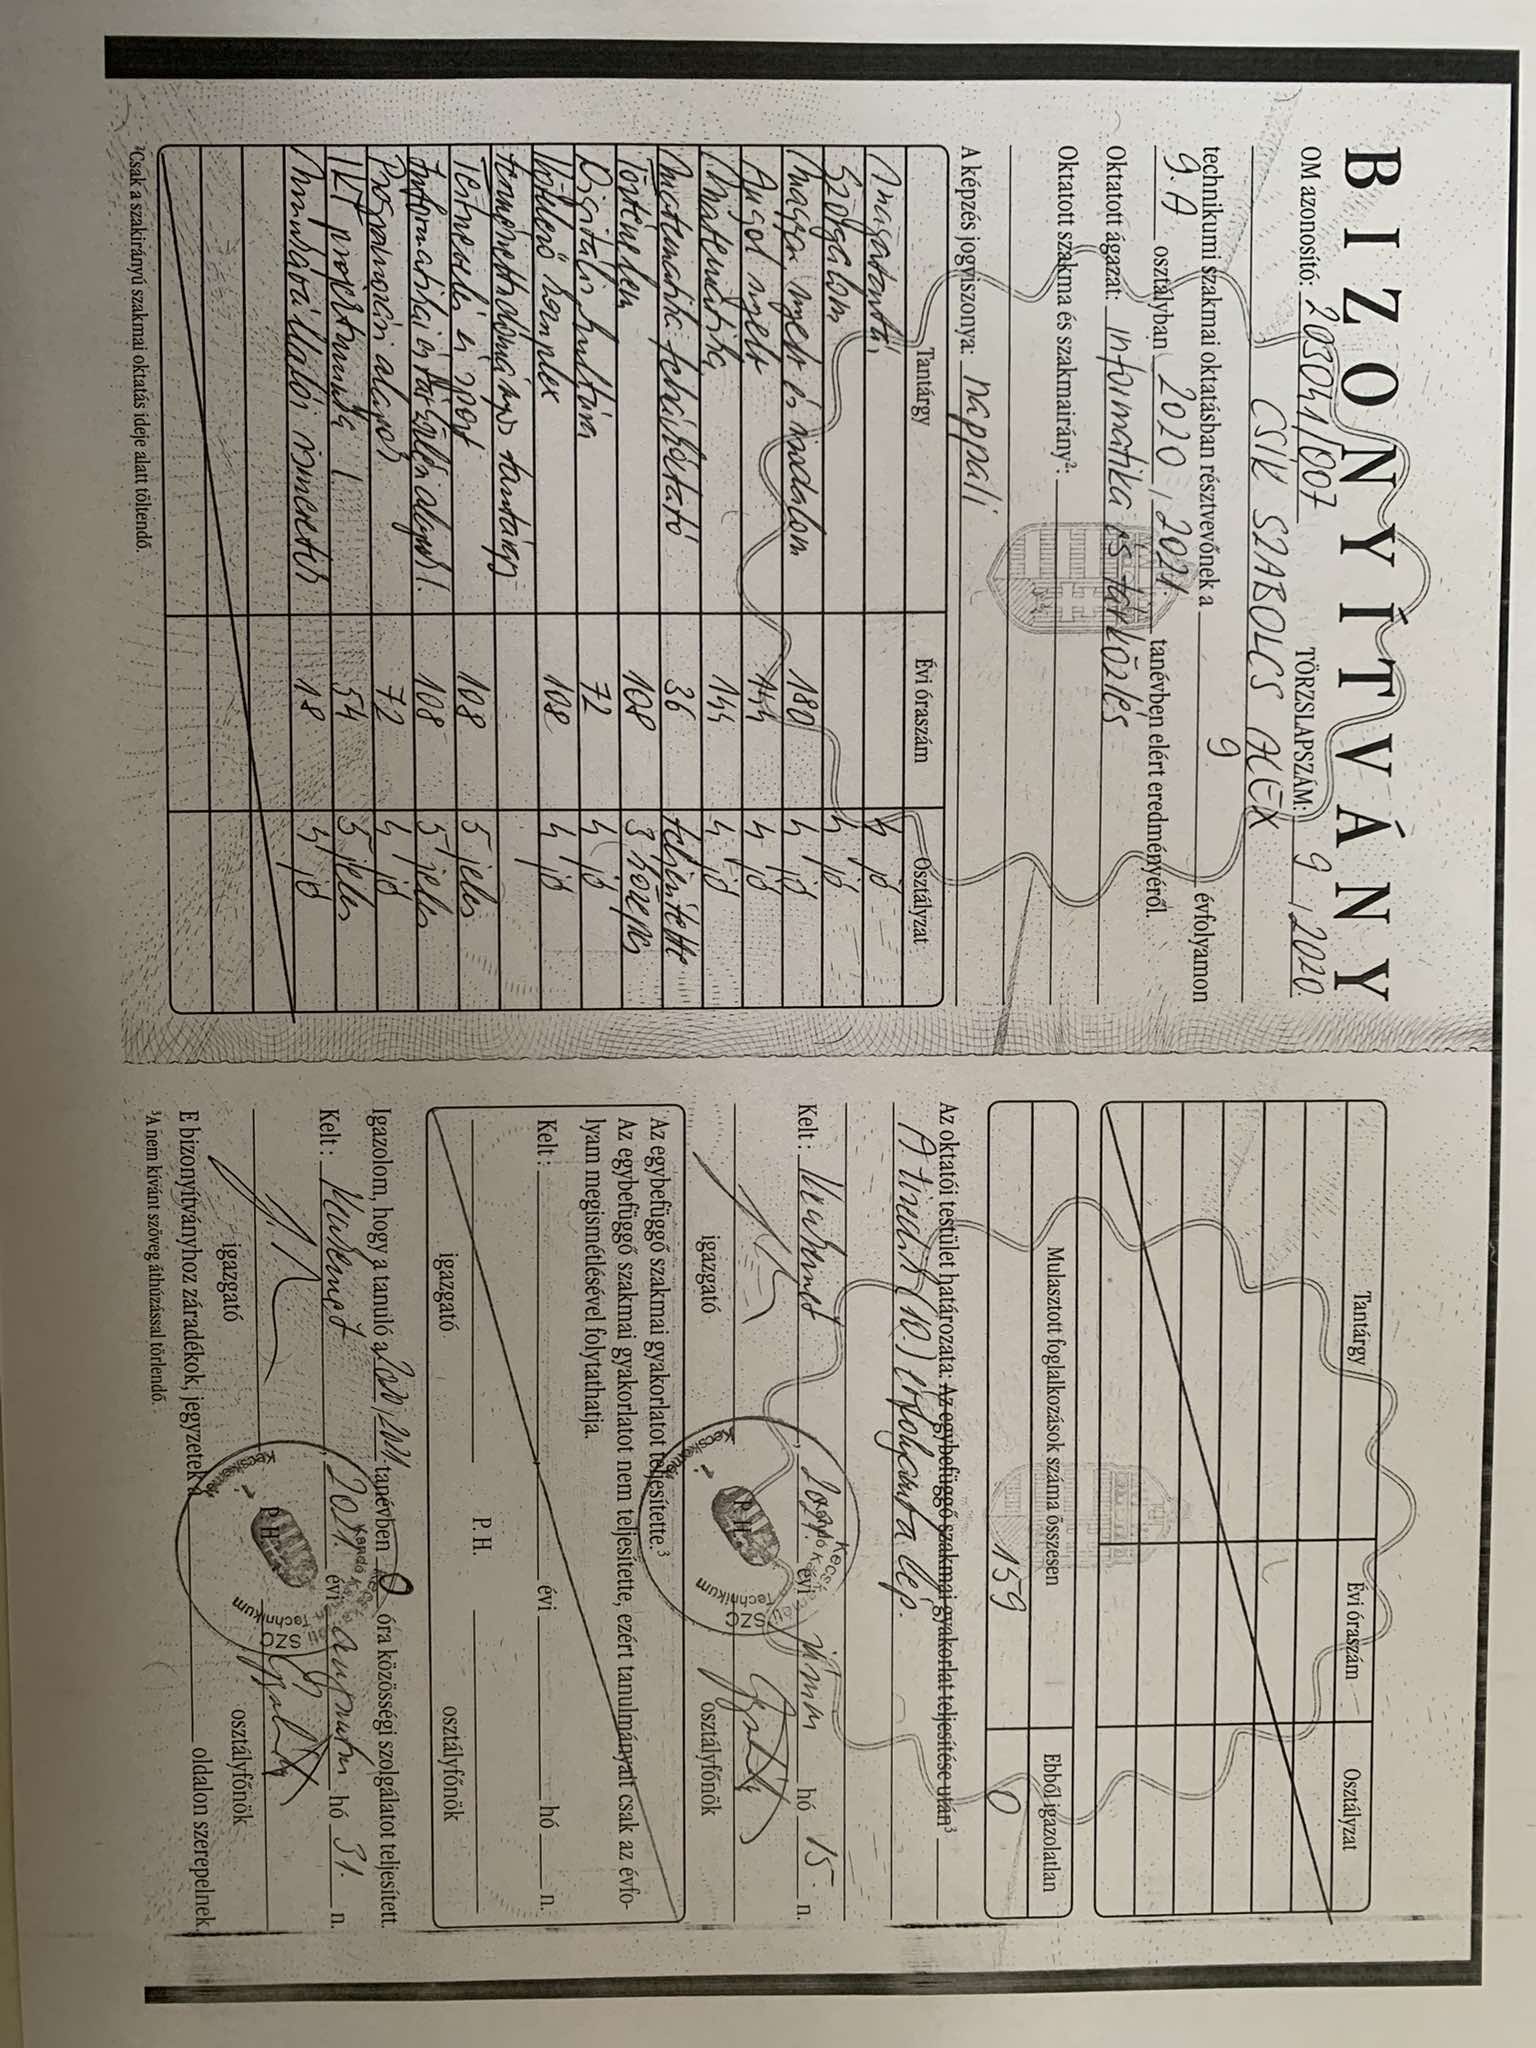 BIZONYÍTVÁNY
OM azonosító: 203041/007 TÖRZSLAPSZÁM: 9 / 2020.
CSÍK SZABOLCS ALEX
technikumi szakmai oktatásban résztvevőnek a 9 évfolyamon
9. A osztályban 2020 / 2021. tanévben elért eredményéről.
Oktatott ágazat: informatika és távközlés
Oktatott szakma és szakmairány²:
A képzés jogviszonya: nappali
Tantárgy Évi óraszám Osztályzat
Magatartás 4 jó
Szorgalom 4 jó
Magyar nyelv és irodalom 180 4 jó
Angol nyelv 144 4 jó
Matematika 144 4 jó
Matematika felzárkóztató 36 teljesítette
Történelem 108 3 közepes
Digitális kultúra 72 4 jó
Kötelező komplex 108 4 jó
természettudományos tantárgy
Testnevelés és sport 108 5 jeles
Informatikai és távközlési alapok I. 108 5 jeles
Programozási alapok 72 4 jó
IKT projektmunka I. 54 5 jeles
Munkavállalói ismeretek 18 4 jó
²Csak a szakirányú szakmai oktatás ideje alatt töltendő.
Tantárgy Évi óraszám Osztályzat
Mulasztott foglalkozások száma összesen Ebből igazolatlan
159 0
Az oktatói testület határozata: Az egybefüggő szakmai gyakorlat teljesítése után³
A tizedik (10.) évfolyamba lép.
Kelt: Kecskemét, 2021. évi június hó 15. n.
P. H.
igazgató osztályfőnök
Az egybefüggő szakmai gyakorlatot teljesítette.³
Az egybefüggő szakmai gyakorlatot nem teljesítette, ezért tanulmányait csak az évfo-
lyam megismétlésével folytathatja.
Kelt: évi hó n.
P. H.
igazgató osztályfőnök
Igazolom, hogy a tanuló a 2020/2021. tanévben 0 óra közösségi szolgálatot teljesített.
Kelt: Kecskemét, 2021. évi augusztus hó 31. n.
P. H.
igazgató osztályfőnök
E bizonyítványhoz záradékok, jegyzetek a oldalon szerepelnek.
³A nem kívánt szöveg áthúzással törlendő.